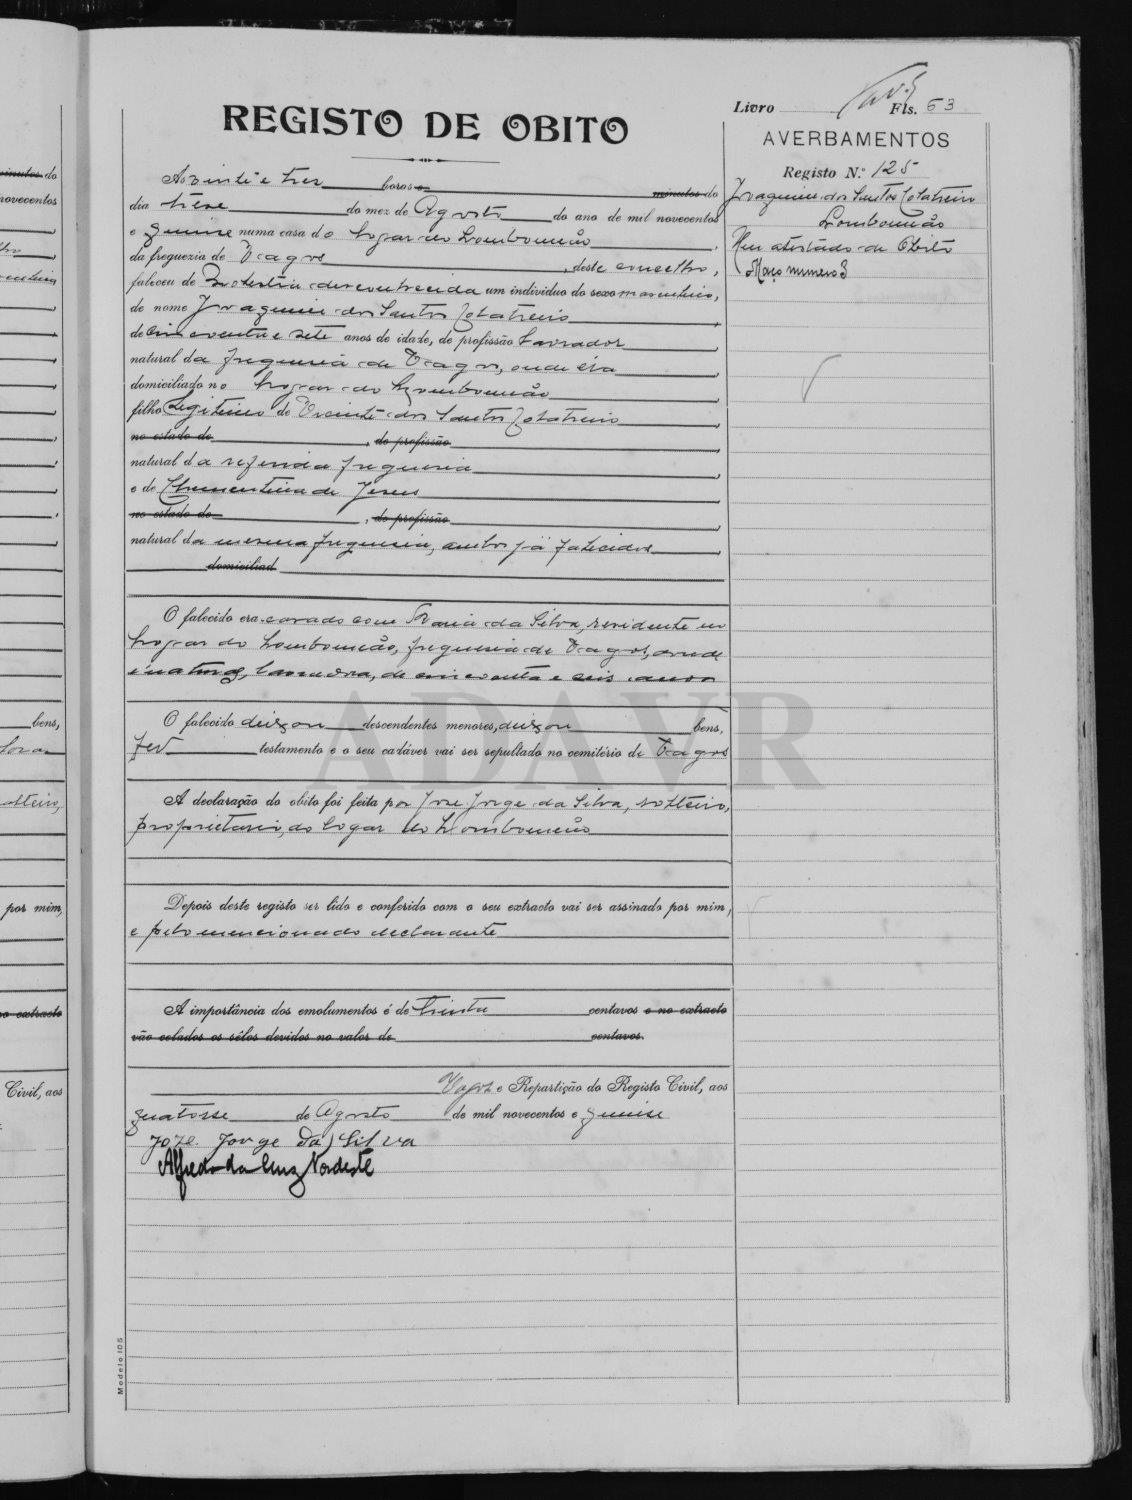 Livro Fls. 53
REGISTO DE OBITO
AVERBAMENTOS
Registo N.º 125
Joaquim dos Santos
Lombomeão
Um atestado de Obito
Maço numero 3
As vinte e tres horas e minutos do
dia trese do mez de Agosto do ano de mil novecentos
e quinse numa casa do logar do Lombomeão,
da freguezia de Vagos, deste concelho,
faleceu de molestia desconhecida um individuo do sexo masculino,
de nome Joaquim dos Santos
de cincoenta e sete anos de idade, de profissão Lavrador,
natural da freguesia de Vagos, onde era
domiciliado no logar do Lombomeão,
filho legitimo de Vicente dos Santos
no estado de , de profissão
natural da referida freguesia
e de Clementina de Jesus
no estado de , de profissão
natural da mesma freguesia, ambos já falecidos,
domiciliad
O falecido era casado com Maria da Silva, residente no
logar do Lombomeão, freguesia de Vagos, onde
é natural, lavradora, de cincoenta e seis annos
O falecido deixou descendentes menores, deixou bens,
fez testamento e o seu cadáver vai ser sepultado no cemitério de Vagos
A declaração do obito foi feita por Jose Jorge da Silva, solteiro,
proprietario, do logar do Lombomeão
Depois deste registo ser lido e conferido com o seu extracto vai ser assinado por mim,
e pelo mencionado declarante
A importância dos emolumentos é de trinta centavos e no extracto
vão colados os sêlos devidos no valor de centavos.
Vagos e Repartição do Registo Civil, aos
quatorse de Agosto de mil novecentos e quinse
Joze Jorge da Silva
Alfredo da Cruz Nordeste
Modelo 105
ADAVR
minutos do
novecentos
bens,
por mim,
no extracto
Civil, aos